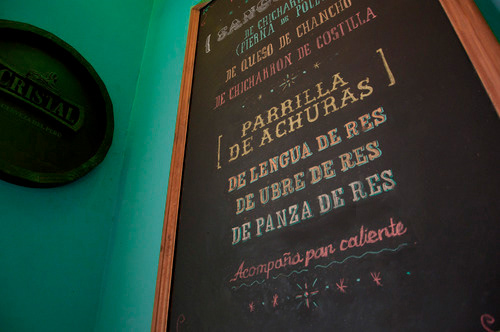 CRISTAL
DE CHICHARRÓN
(PIERNA DE POLLO)
DE QUESO DE CHANCHO
DE CHICHARRON DE COSTILLA
[ PARRILLA
DE ACHURAS ]
DE LENGUA DE RES
DE UBRE DE RES
DE PANZA DE RES
Acompaña pan caliente